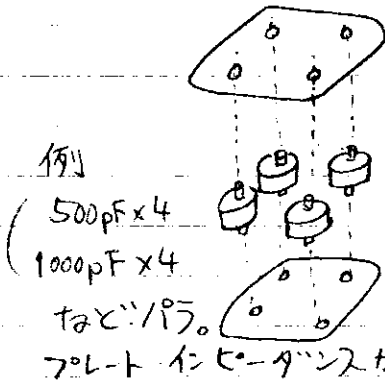 例
500pF×4
1000pF×4
などパラ。
プレートインピーダンスが